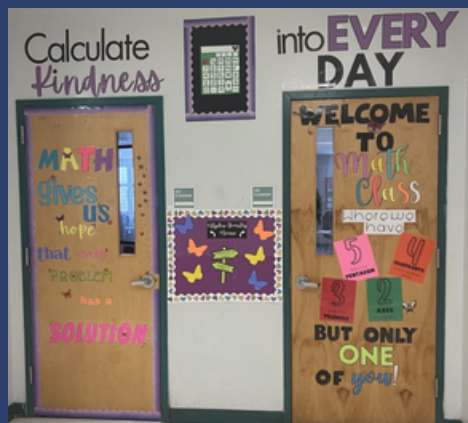 Calculate
Kindness
into EVERY
DAY
MATH
gives
us
hope
that every
PROBLEM
has a
SOLUTION
WELCOME
TO
Math
Class
where we
have
5
PENTAGON
4
QUADRANTS
3
TRIANGLE
2
AXES
BUT ONLY
ONE
OF you!